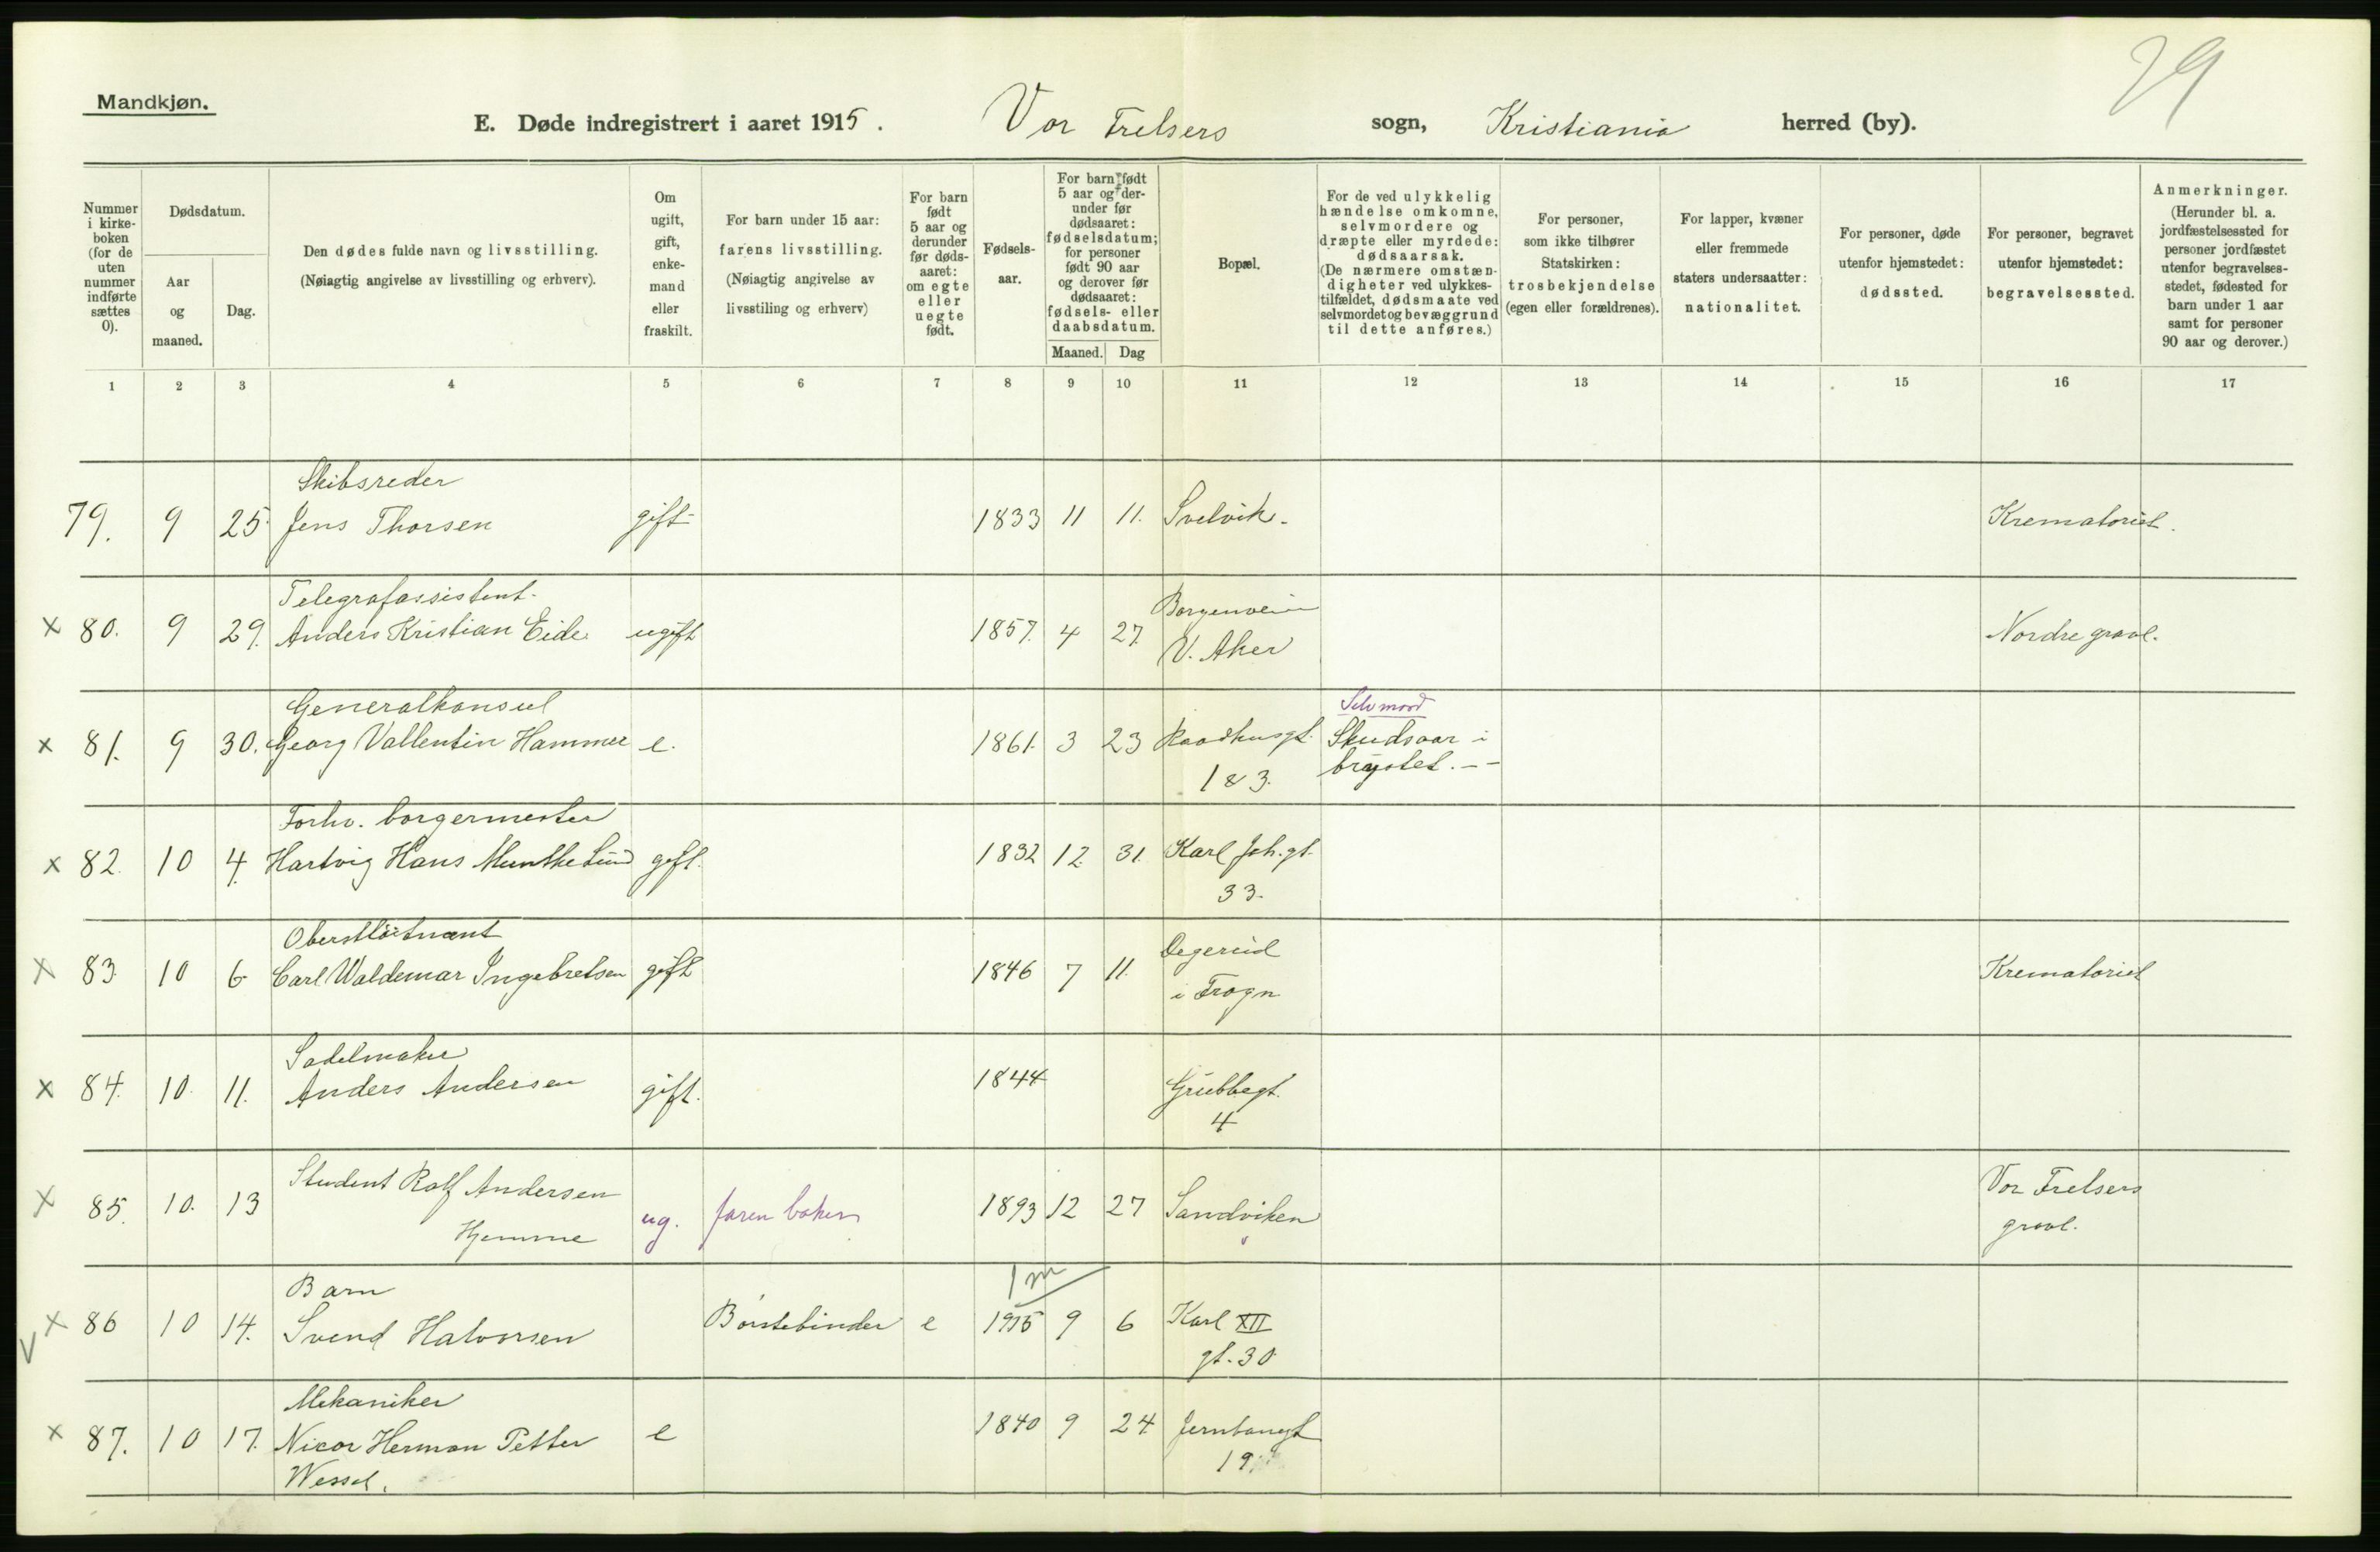 29
Mandkjøn.
E. Døde indregistrert i aaret 1915. Vor Frelsers sogn, Kristiania herred (by).
Nummer i kirkeboken (for de uten nummer indførte sættes 0).
Dødsdatum.
Aar og maaned.
Dag.
Den dødes fulde navn og livsstilling.
(Nøiagtig angivelse av livsstilling og erhverv).
Om ugift, gift, enkemand eller fraskilt.
For barn under 15 aar: farens livsstilling.
(Nøiagtig angivelse av livsstiling og erhverv)
For barn født 5 aar og derunder før dødsaaret: om egte eller uegte født.
Fødselsaar.
For barn født 5 aar og derunder før dødsaaret: fødselsdatum; for personer født 90 aar og derover før dødsaaret: fødsels- eller daabsdatum.
Maaned. Dag
Bopæl.
For de ved ulykkelig hændelse omkomne, selvmordere og dræpte eller myrdede: dødsaarsak.
(De nærmere omstændigheter ved ulykkestilfældet, dødsmaate ved selvmordet og bevæggrund til dette anføres.)
For personer, som ikke tilhører Statskirken: trosbekjendelse (egen eller forældrenes).
For lapper, kvæner eller fremmede staters undersaatter: nationalitet.
For personer, døde utenfor hjemstedet: dødssted.
For personer, begravet utenfor hjemstedet: begravelsessted.
Anmerkninger.
(Herunder bl. a. jordfæstelsessted for personer jordfæstet utenfor begravelsesstedet, fødested for barn under 1 aar samt for personer 90 aar og derover.)
1 2 3 4 5 6 7 8 9 10 11 12 13 14 15 16 17
Skibsreder
79. 9 25. Jens Thorsen gift 1833 11 11. Svelvik. Krematoriet.
Telegrafassistent.
x 80. 9 29. Anders Kristian Eide ugift 1857. 4 27. Borgenveien V. Aker Nordre gravl.
Generalkonsul
x 81. 9 30. Georg Vallentin Hammer e. 1861. 3 23 Raadhusgt. 1 & 3. Selvmord Skudsaar i brystet. - -
Forhv. borgermester
x 82. 10 4. Hartvig Hans Munthe Lund gift. 1832 12. 31. Karl Joh. gt. 33.
Oberstløitnant
x 83 10 6 Carl Waldemar Ingebretsen gift 1846 7 11. Degerud i Frogn Krematoriet
Sadelmaker
x 84. 10. 11. Anders Andersen gift. 1844 Grubbegt. 4
x 85. 10. 13 Student Rolf Andersen Hjemme ug. faren baker 1893 12 27 Sandviken Vor Frelsers gravl.
Barn 1 m
V x 86 10 14. Svend Halvorsen Børstebinder e 1915 9 6 Karl XII gt. 30
Mekaniker
x 87. 10 17. Nicor Herman Petter e 1840 9 24 Jernbanegt 19
Wessel.